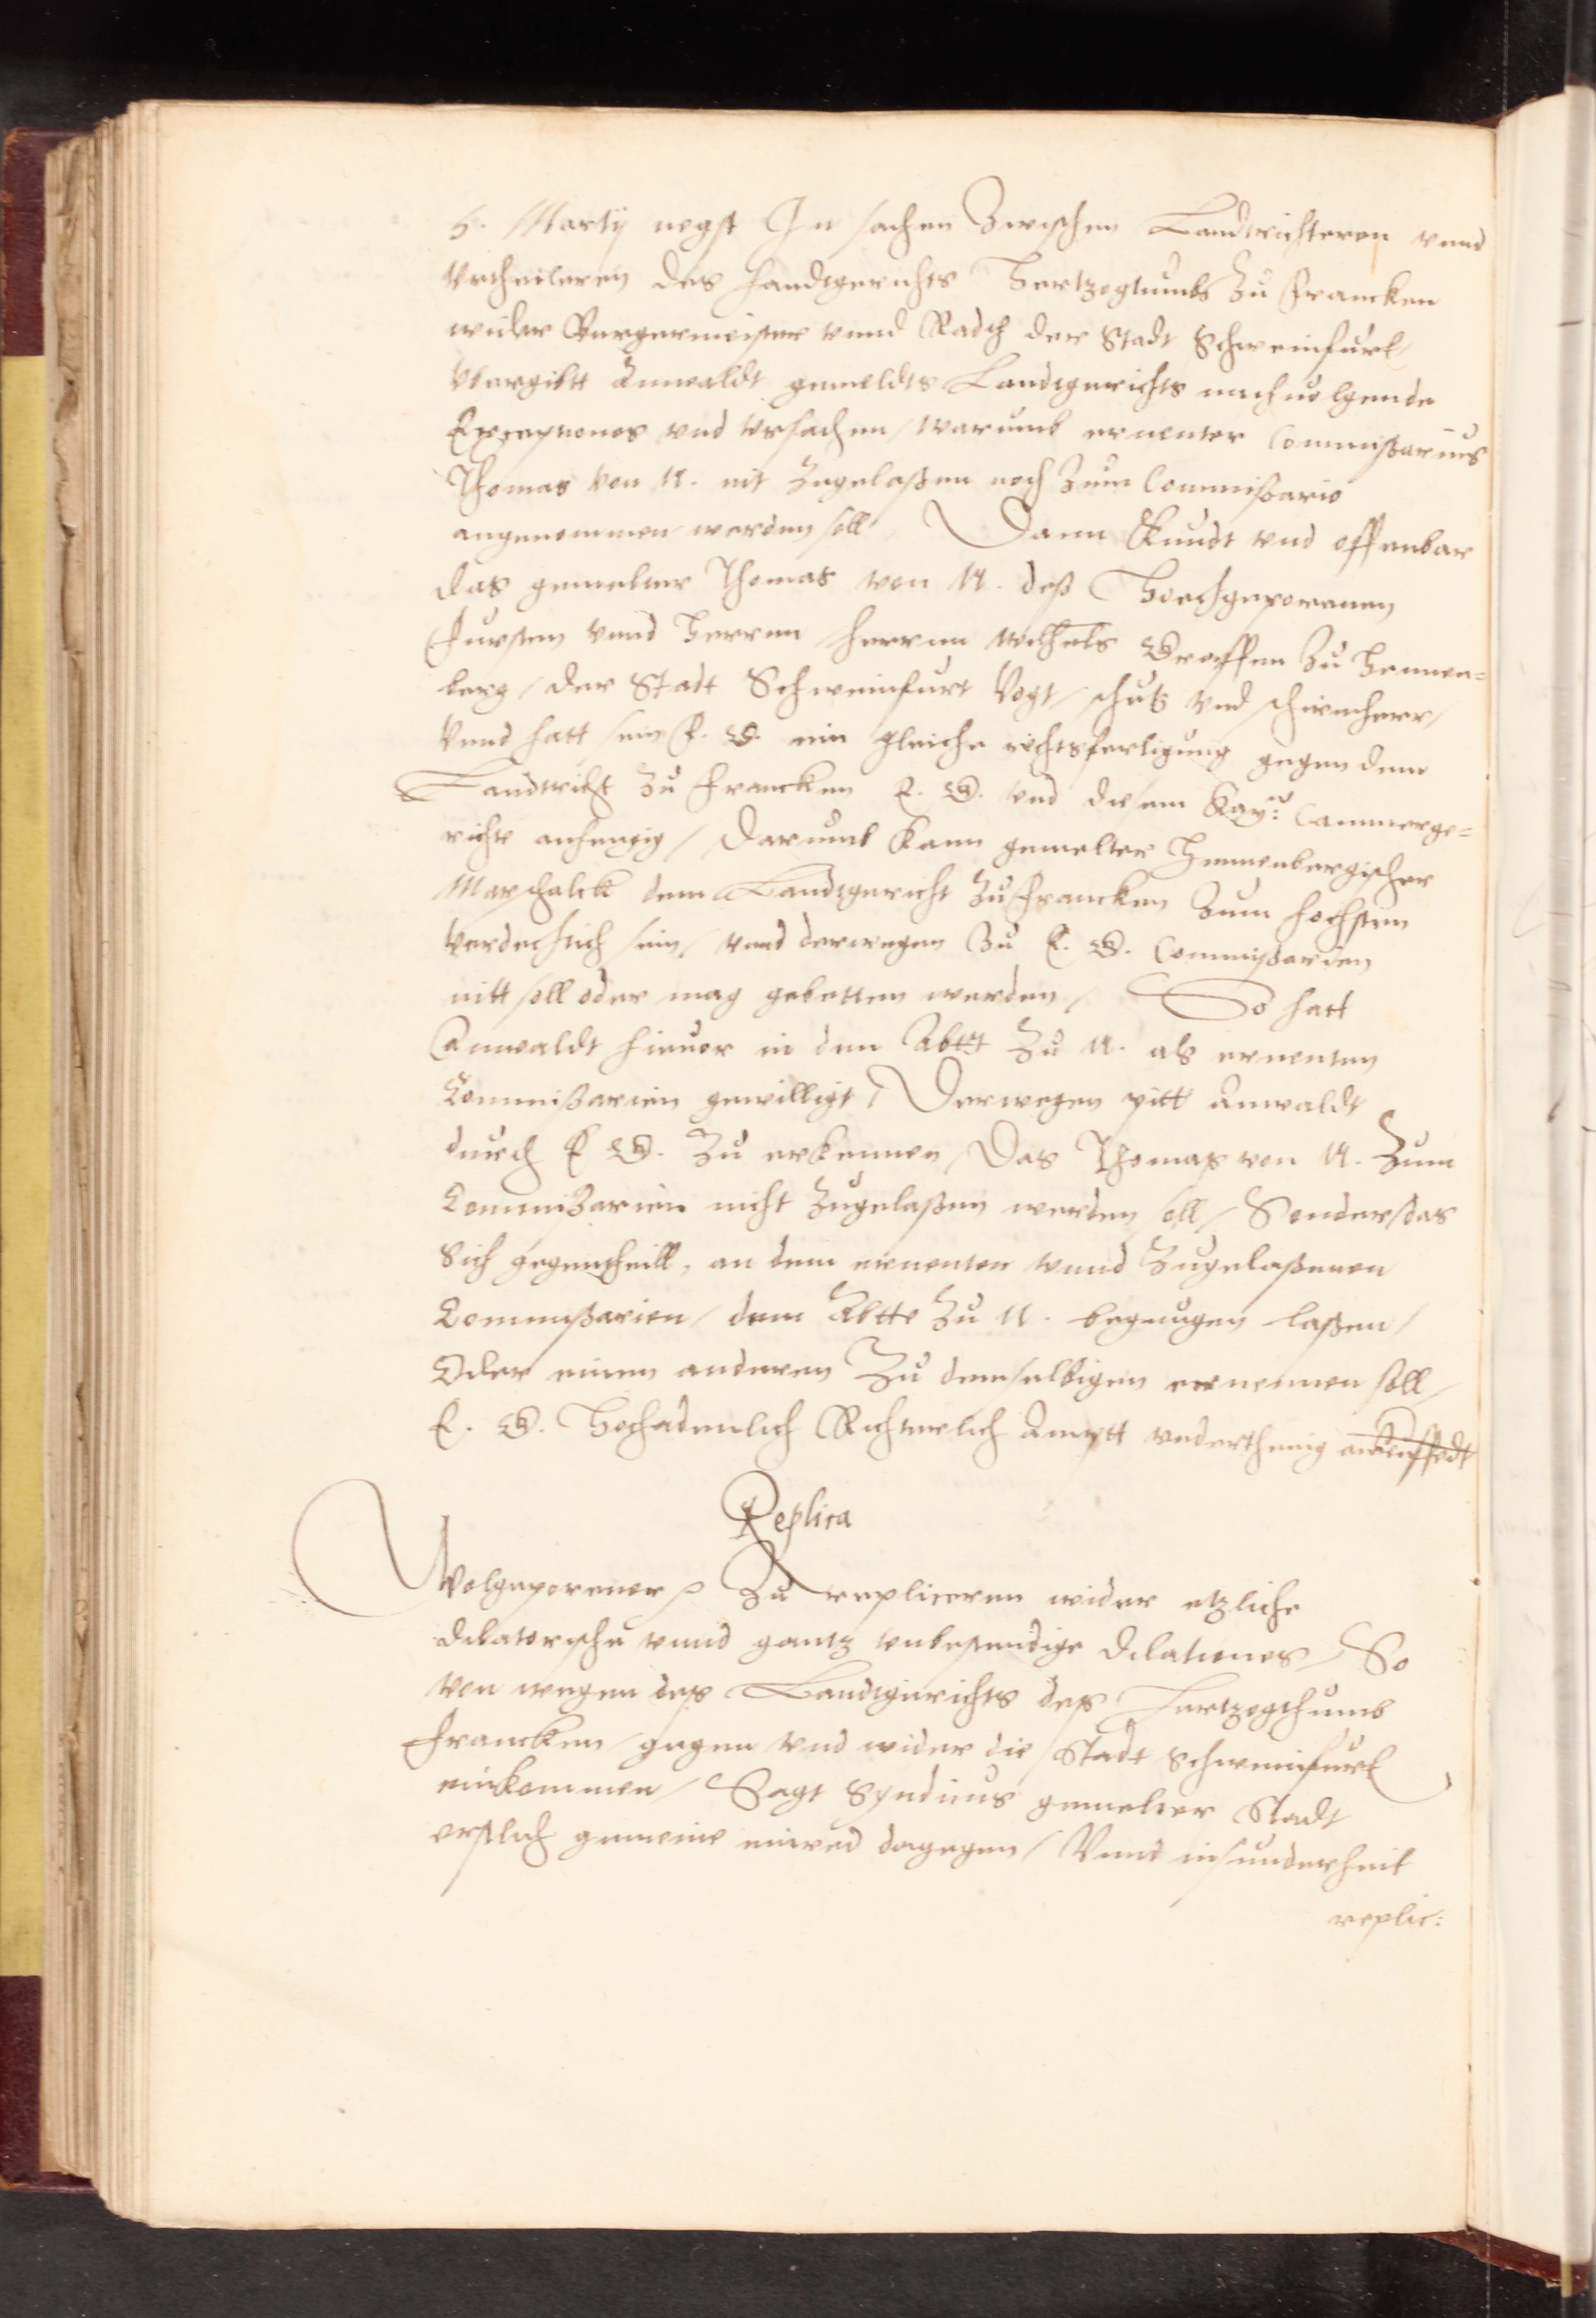 5. Martij negst In sachen Zwischen Landtrichteren vnnd
Vrtheileren des Landtgerichts Hertzogtumbs Zu Francken
wider Burgermeister vnnd Radth der Stadt Schweinfurt /
Vbergibtt Anwaldt gemeldts Landtgerichts nachuolgende
Exceptiones vnd Vrsachen / warumb ernenter Commißarius
Thomas von N. nit Zugelaßen noch Zum Commißario
angenommen werden soll / Dann Kundt vnd offenbar
das gemelter Thomas von N. deß Hochgepornnen
Fursten vnnd Herrnn Herrnn Wilhels Graffen Zu Hennen=
berg / der Stadt Schweinfurt Vogt / schutz vnd schirmherr /
Vnnd hatt sein F. G. ein gleiche rechtsfertigung gegen dem
Landtricht Zu Francken E. G. vnd diesem Kay: Cammerge=
richte anhengig / Darumb kann gemelter Hennenbergischer
Marschalck dem Landtgericht Zu Francken Zum hochsten
verdechtich sein / vnnd derwegen Zu E. G. Commißarien
nitt soll oder mag gebetten werden / So hatt
Anwaldt hieuor in den Abtt Zu N. als ernenten
Commißarien gewilligt / Derwegen pitt Anwaldt
durch E G. Zu erkennen / Das Thomas von N. Zum
Commißarien nicht Zugelaßen werden soll / Sonder das
Sich gegentheill, an dem ernenten vnnd Zugelaßenen
Commißarien / dem Abtte Zu N. begnugen laßen /
Oder einen anderen Zu demselbigen ernennen soll /
E. G. Hochadenlich Richterlich Amptt vnderthenig anruffedt
Replica
Wolgeporener Zu repliceren wider etzliche
dilatorische vnnd gantz vnbestendige dilationes / So
von wegen deß Landtgerichts deß Hertzogthumb
Francken / gegen vnd wider die Stadt Schweinfurt
einkommen / Sagt Syndicus gemelter Stadt
erstlich gemeine einred dagegen / Vnnd insunderheit
replic: